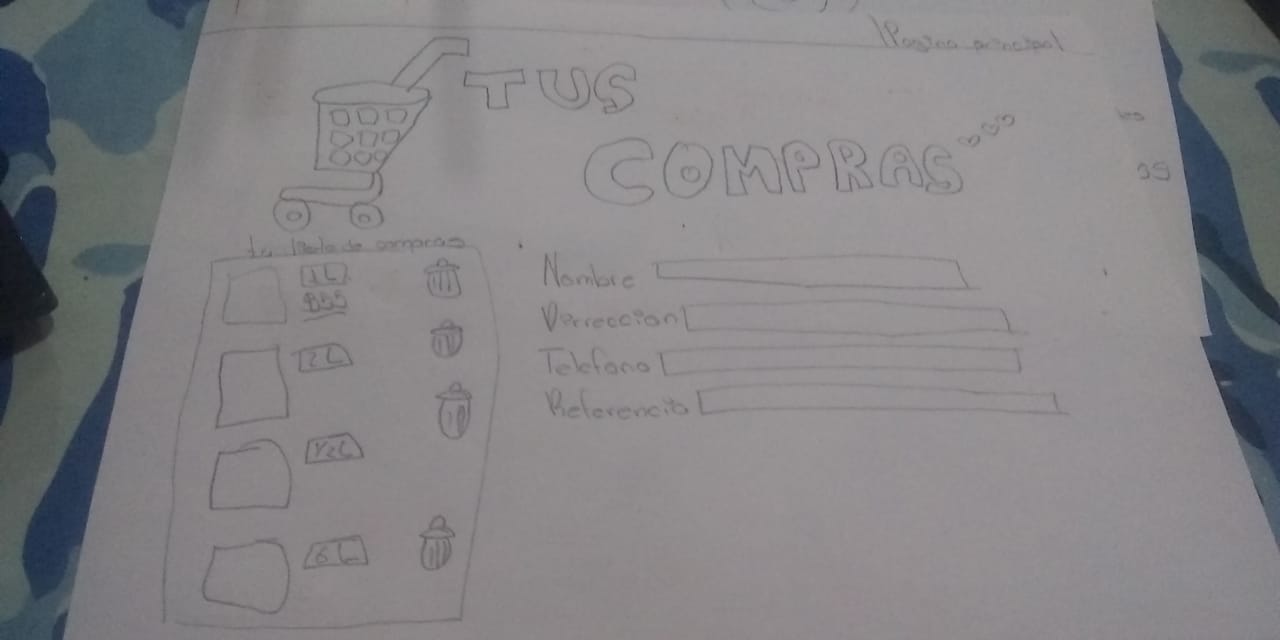 Pagina principal
TUS
COMPRAS
tu lista de compras
1L
$55
2L
1/2L
6L
Nombre
Derreccion
Telefono
Referencia